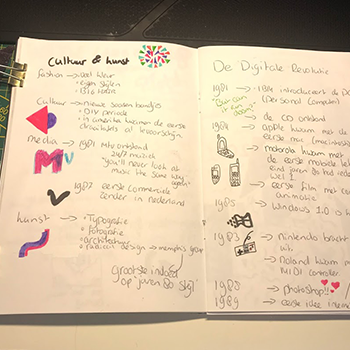 Cultuur & kunst
fashion → veel kleur
→ eigen stijlen
Cultuur → nieuwe soorten bandjes
→ D.I.Y periode
→ in amerika kwamen de eerste
media → 1981 Mtv ontstond
24/7 muziek
"you'll never look at
music the same way
again"
MTV
1987 eerste commerciele
zender in nederland
kunst → Typografie
→ fotografie
→ architectuur
→ radical design → memphis group
grootste invloed
op 'jaren 80 stijl'
De Digitale Revolutie
1981 → IBM introduceert de PC
(Personal Computer)
→ de CD ontstond
1984 → apple kwam met de
eerste mac (macintosh)
→ motorola kwam met
de eerste mobiele
eind jaren 80 had
→ eerste film met
animatie
1985 → Windows 1.0
1983 → nintendo bracht
uit.
→ Roland kwam
MIDI controller.
1988 → photoshop!!
1989 → eerste idee